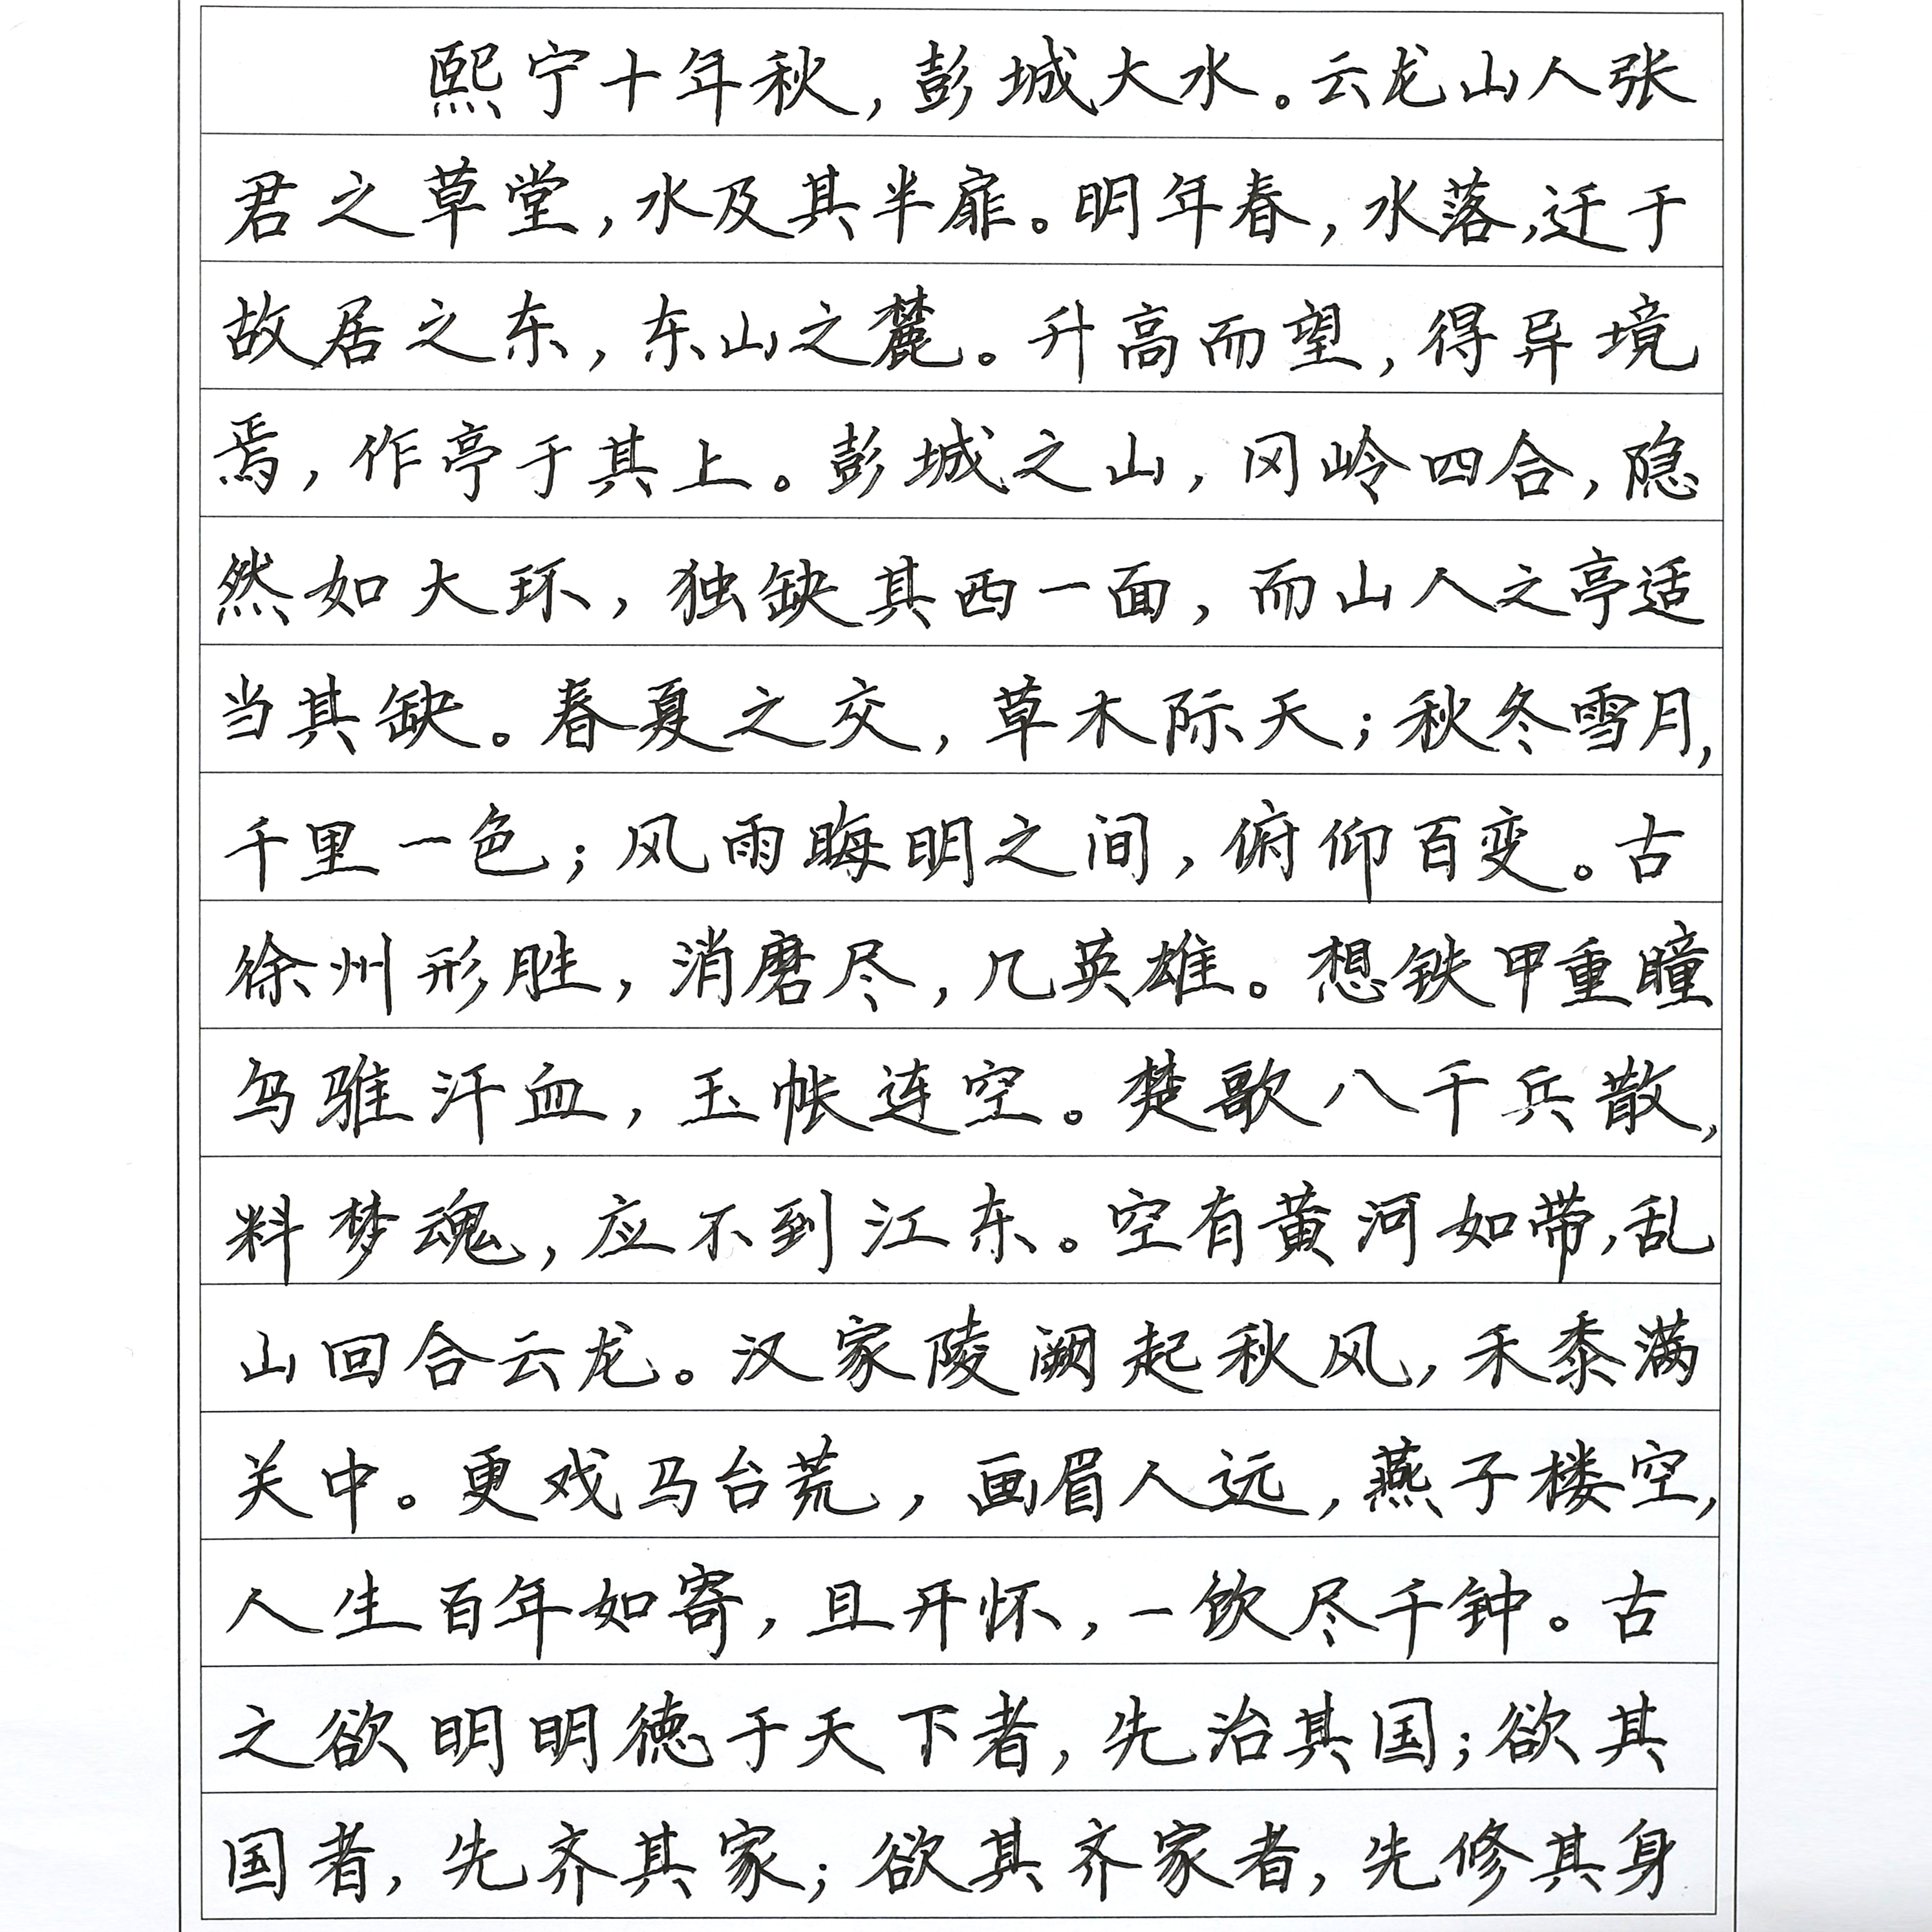 熙宁十年秋，彭城大水。云龙山人张
君之草堂，水及其半扉。明年春，水落，迁于
故居之东，东山之麓。升高而望，得异境
焉，作亭于其上。彭城之山，冈岭四合，隐
然如大环，独缺其西一面，而山人之亭适
当其缺。春夏之交，草木际天；秋冬雪月，
千里一色；风雨晦明之间，俯仰百变。古
徐州形胜，消磨尽，几英雄。想铁甲重瞳
乌骓汗血，玉帐连空。楚歌八千兵散，
料梦魂，应不到江东。空有黄河如带，乱
山回合云龙。汉家陵阙起秋风，禾黍满
关中。更戏马台荒，画眉人远，燕子楼空，
人生百年如寄，且开怀，一饮尽千钟。古
之欲明明德于天下者，先治其国；欲其
国者，先齐其家；欲其齐家者，先修其身